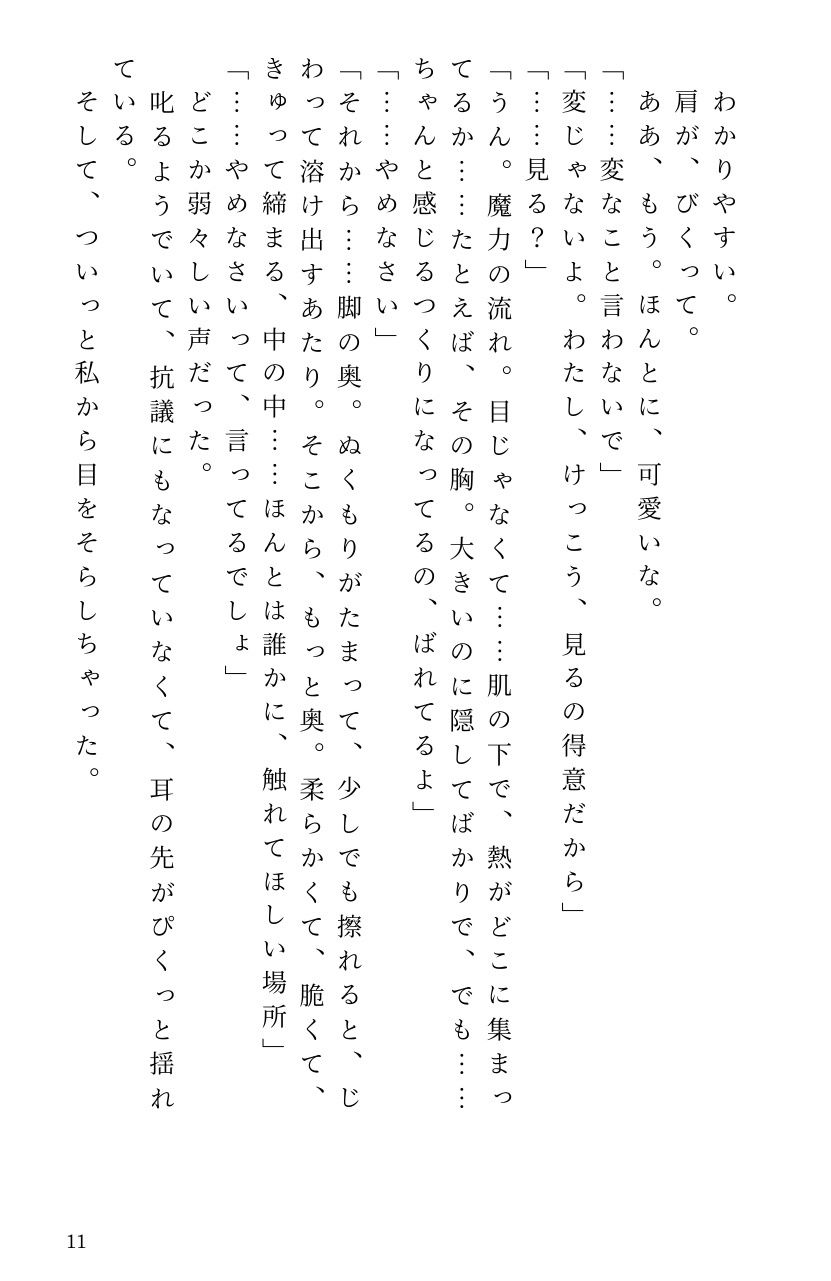 わかりやすい。
肩が、びくって。
ああ、もう。ほんとに、可愛いな。
「……変なこと言わないで」
「変じゃないよ。わたし、けっこう、見るの得意だから」
「……見る？」
「うん。魔力の流れ。目じゃなくて……肌の下で、熱がどこに集まっ
てるか……たとえば、その胸。大きいのに隠してばかりで、でも……
ちゃんと感じるつくりになってるの、ばれてるよ」
「……やめなさい」
「それから……脚の奥。ぬくもりがたまって、少しでも擦れると、じ
わって溶け出すあたり。そこから、もっと奥。柔らかくて、脆くて、
きゅって締まる、中の中……ほんとは誰かに、触れてほしい場所」
「……やめなさいって、言ってるでしょ」
どこか弱々しい声だった。
叱るようでいて、抗議にもなっていなくて、耳の先がぴくっと揺れ
ている。
そして、ついっと私から目をそらしちゃった。
11